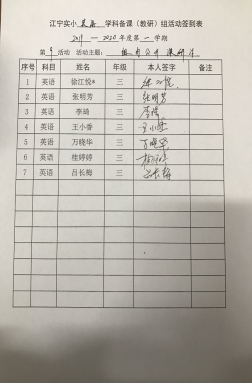 江宁实小 英语 学科备课（教研）组活动签到表
2019 — 2020 年度第 一 学期
第 9 活动 活动主题：
序号 科目 姓名 年级 本人签字 备注
1 英语 徐江悦* 三
2 英语 张明芳 三 张明芳
3 英语 李琦 三 李琦
4 英语 王小香 三 王小香
5 英语 万晓华 三 万晓华
6 英语 桂婷婷 三 桂婷婷
7 英语 吕长梅 三 吕长梅